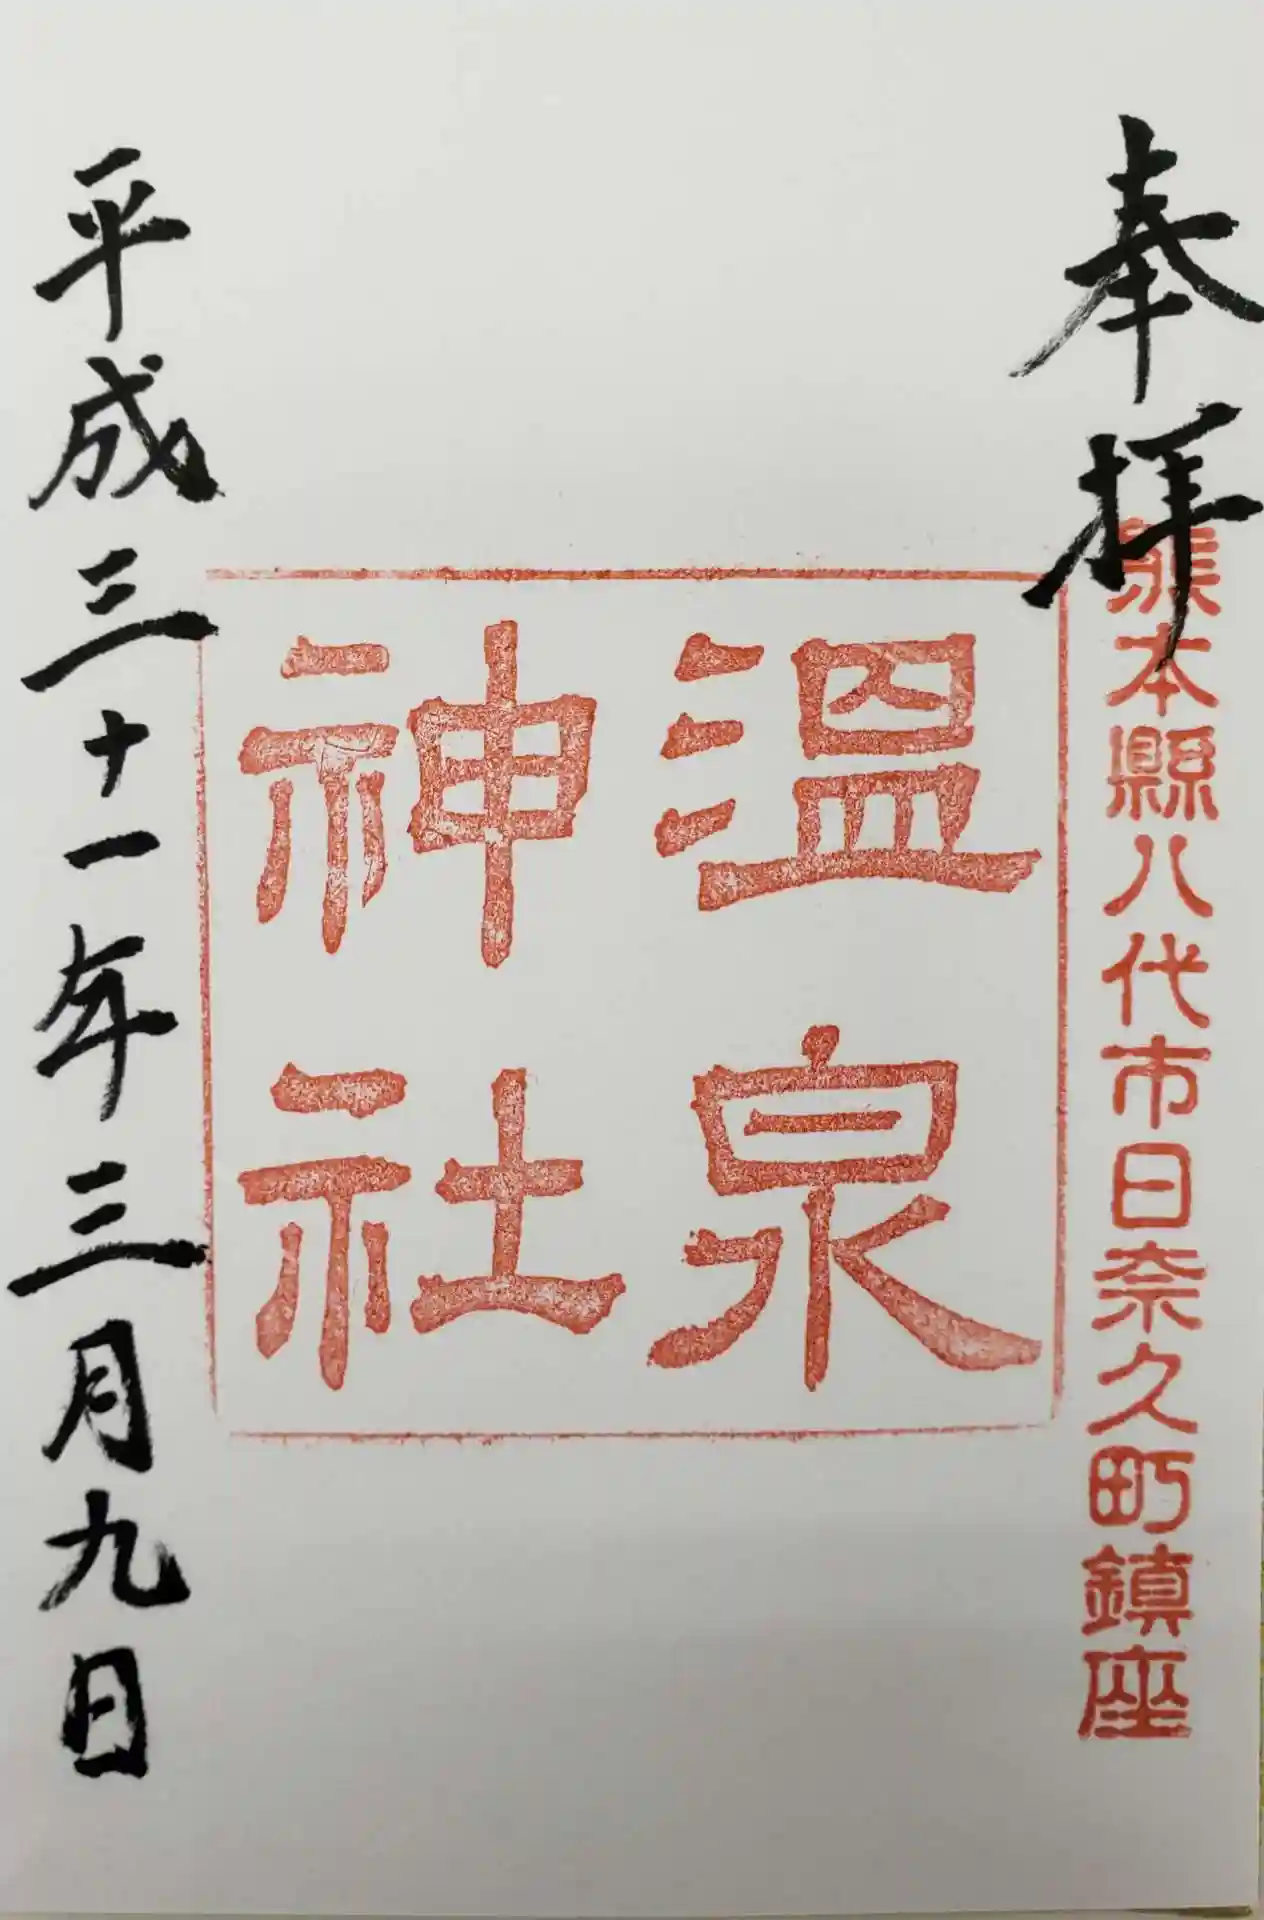 奉拝
熊本縣八代市日奈久町鎮座
溫泉
神社
平成三十一年三月九日